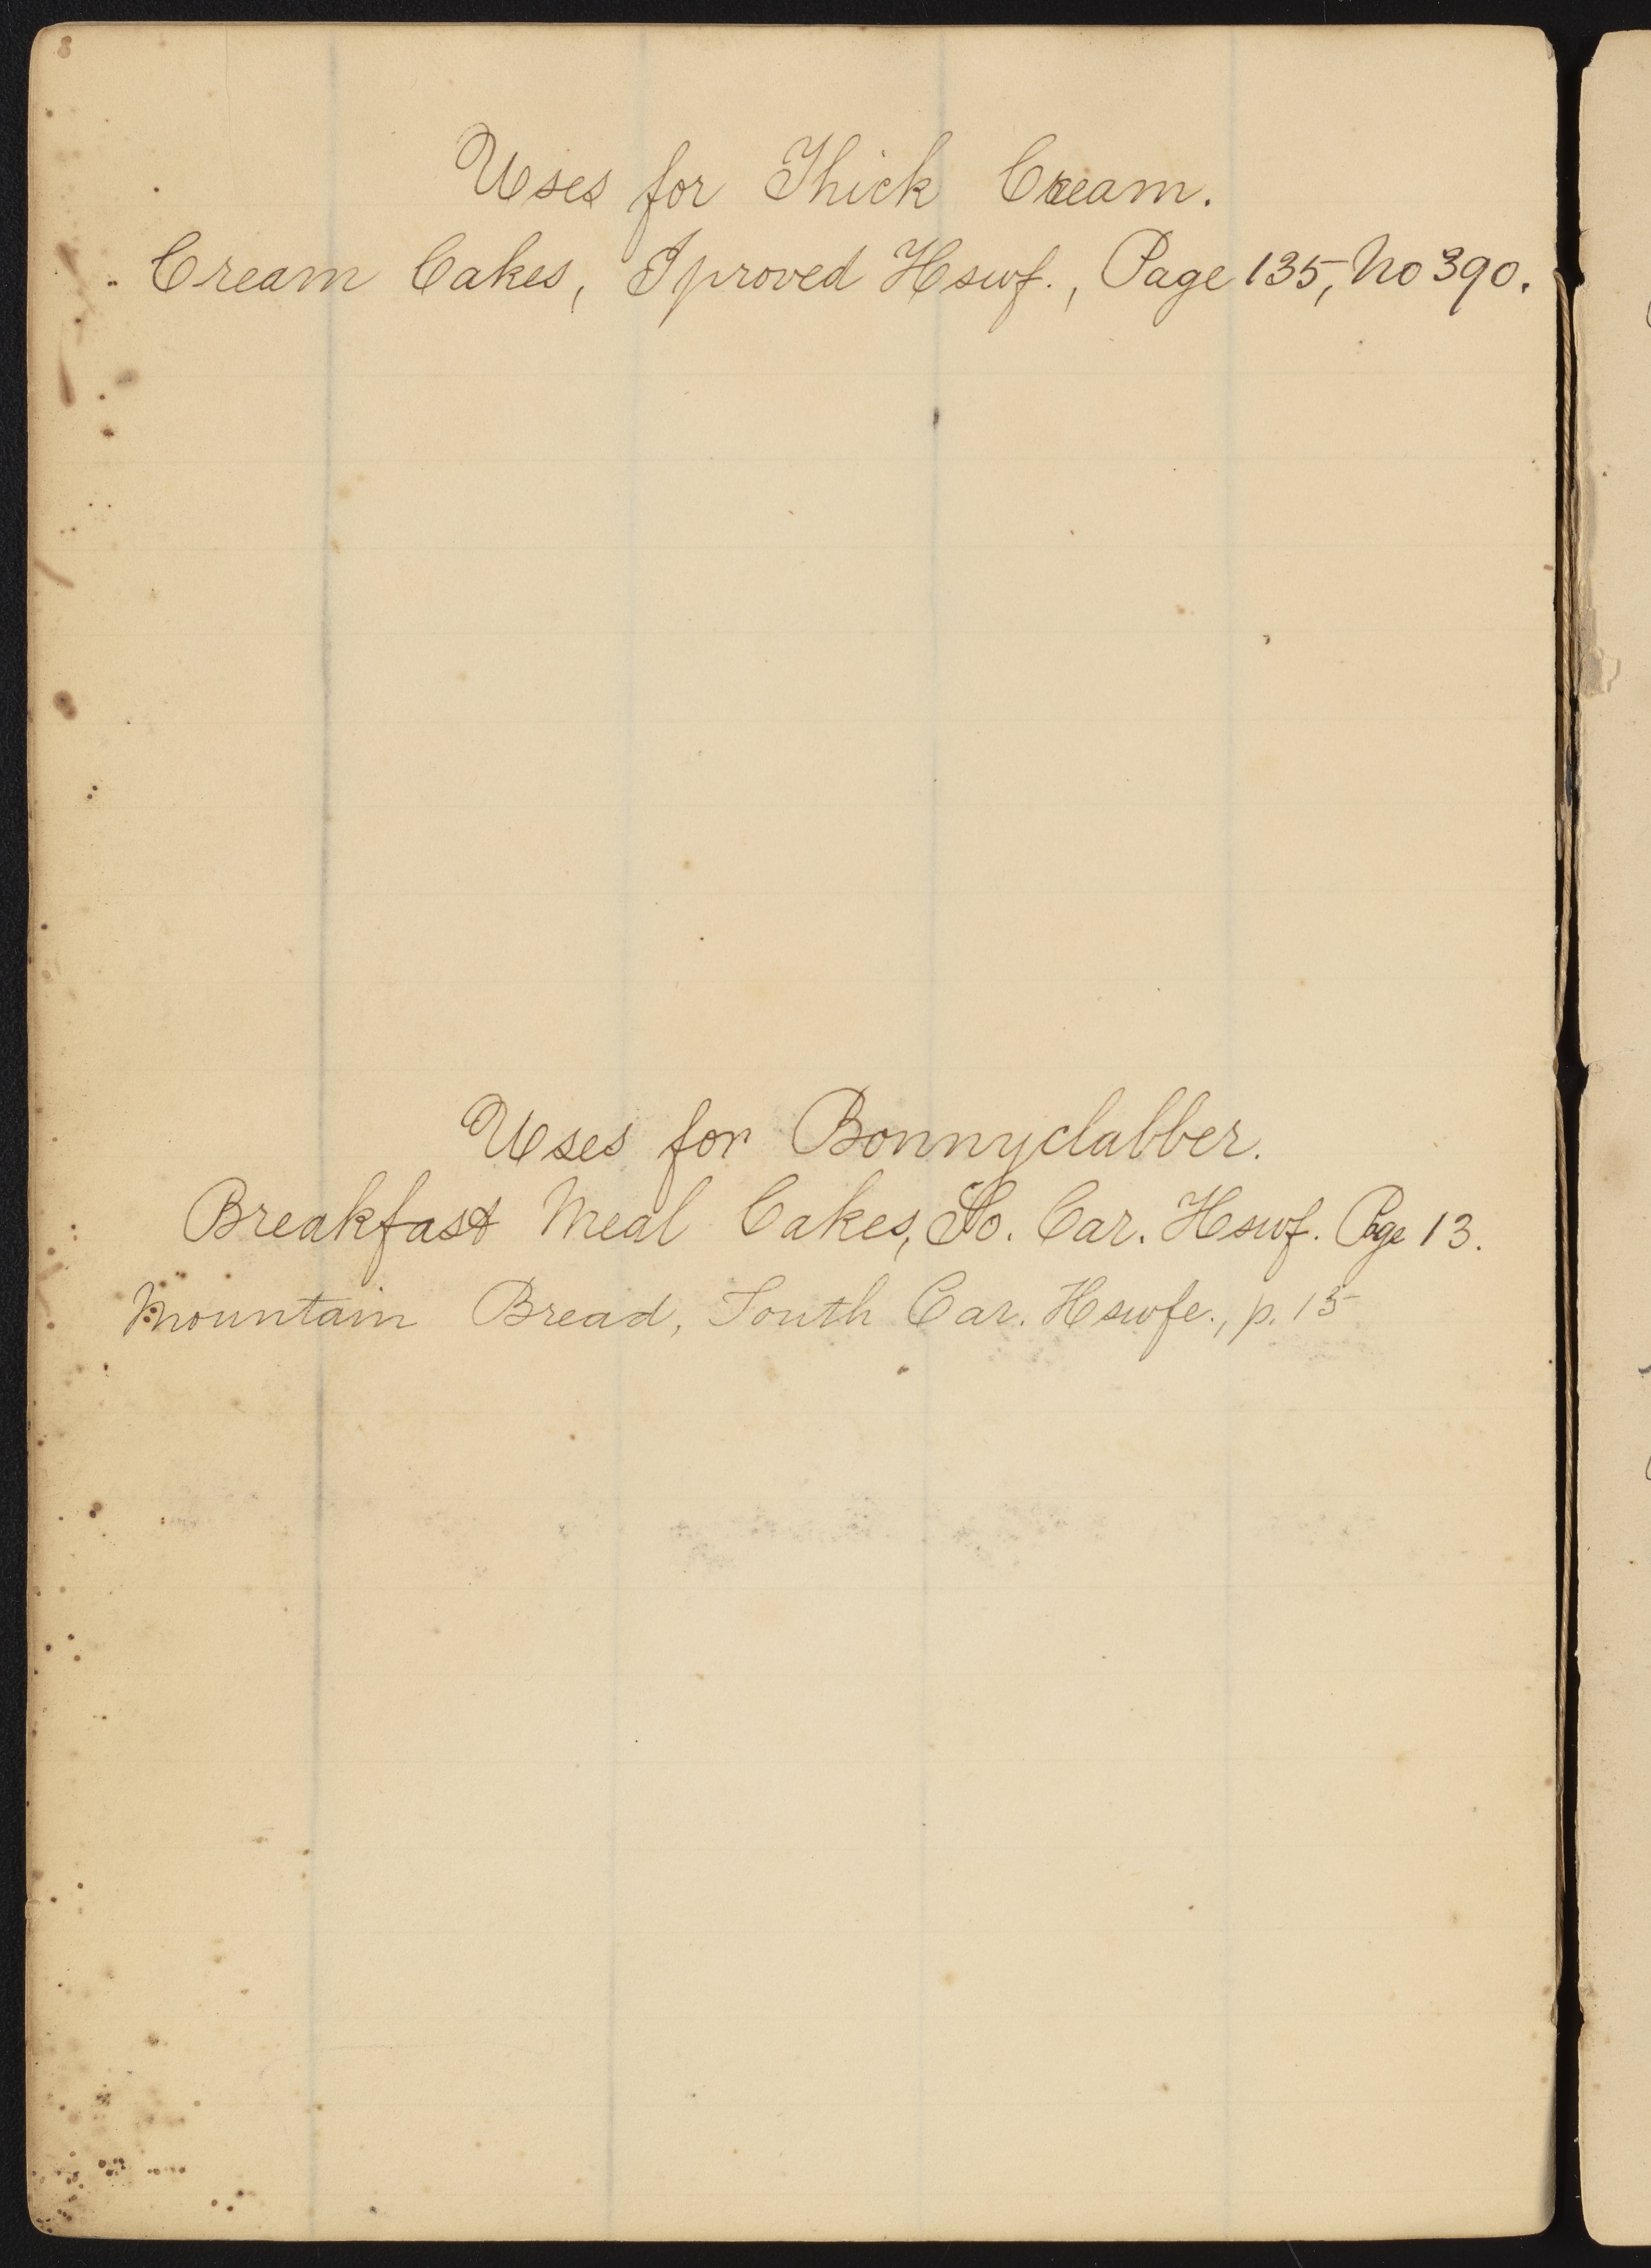 8
Uses for Thick Cream.
Cream Cakes, Iproved Hswf., Page 135, No 390.
Uses for Bonnyclabber.
Breakfast Meal Cakes, So. Car. Hswf. Page 13.
Mountain Bread, South Car. Hswfe., p. 15